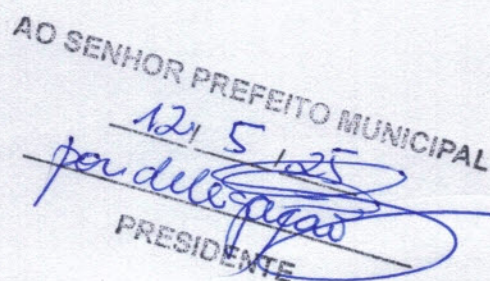 AO SENHOR PREFEITO MUNICIPAL
12, 5, 25
por delegação
PRESIDENTE